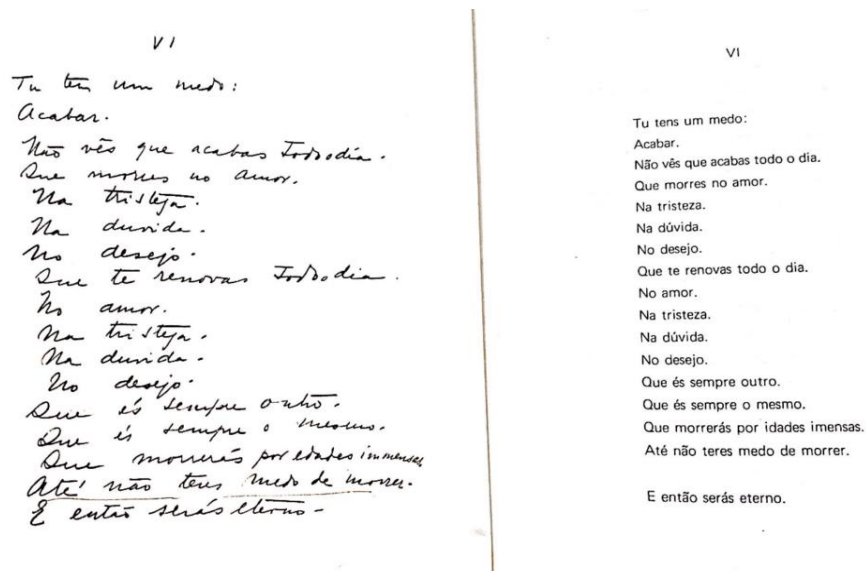 VI
Tu tens um medo:
Acabar.
Não vês que acabas todo dia.
Que morres no amor.
Na tristeza.
Na duvida.
No desejo.
Que te renovas todo dia.
No amor.
Na tristeza.
Na duvida.
No desejo.
Que és sempre outro.
Que és sempre o mesmo.
Que morrerás por edades immensas
Até não teres medo de morrer.
E então serás eterno.
VI
Tu tens um medo:
Acabar.
Não vês que acabas todo o dia.
Que morres no amor.
Na tristeza.
Na dúvida.
No desejo.
Que te renovas todo o dia.
No amor.
Na tristeza.
Na dúvida.
No desejo.
Que és sempre outro.
Que és sempre o mesmo.
Que morrerás por idades imensas.
Até não teres medo de morrer.
E então serás eterno.